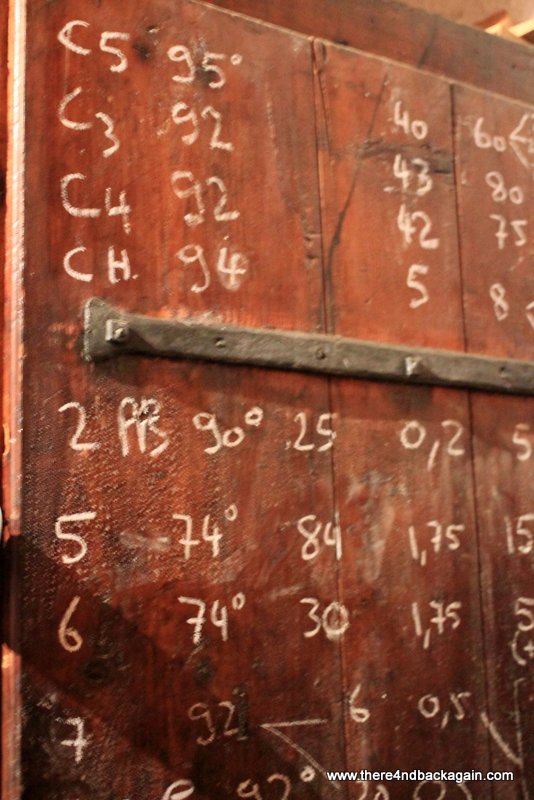 C5 95° 
C3 92 40 60
C4 92 43 80
42 75
CH. 94 5 8
2 PB 90° 25 0,2 5
5 74° 84 1,75 15
6 74° 30 1,75 5
7 92 6 0,5
92° 20
www.there4ndbackagain.com